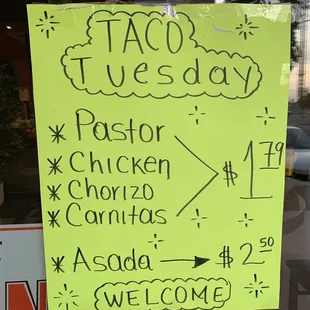 TACO
Tuesday
* Pastor
* Chicken
* Chorizo
* Carnitas
$1.79
* Asada → $2.50
WELCOME